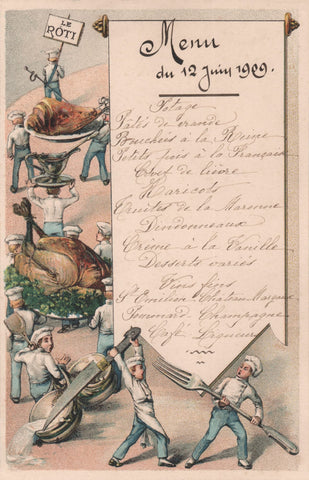 LE
ROTI
Menu
du 12 Juin 1909.
Potage
Patés de viande
Bouchées à la Reine
Petits pois à la Française
Civet de lièvre
Haricots
Truites de la Maronne
Dindonneaux
Crème à la Vanille
Desserts variés
Vins fins
St Emilion Château-Margaux
Pommard Champagne
Café Liqueurs